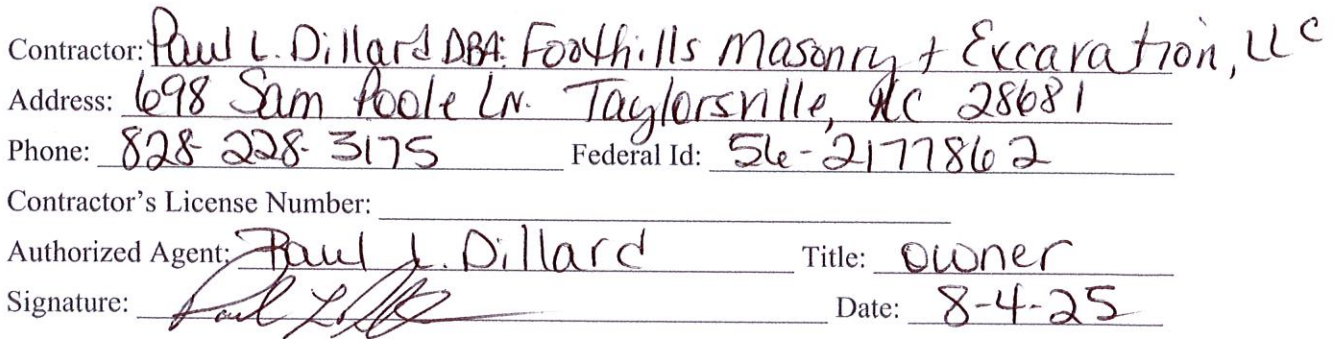 Contractor: Paul L. Dillard DBA: Foothills Masonry + Excavation, LLC
Address: 698 Sam Poole Ln. Taylorsville, NC 28681
Phone: 828-228-3175 Federal Id: 56-2177862
Contractor's License Number:
Authorized Agent: Paul L. Dillard Title: owner
Signature: Paul L. Dillard Date: 8-4-25